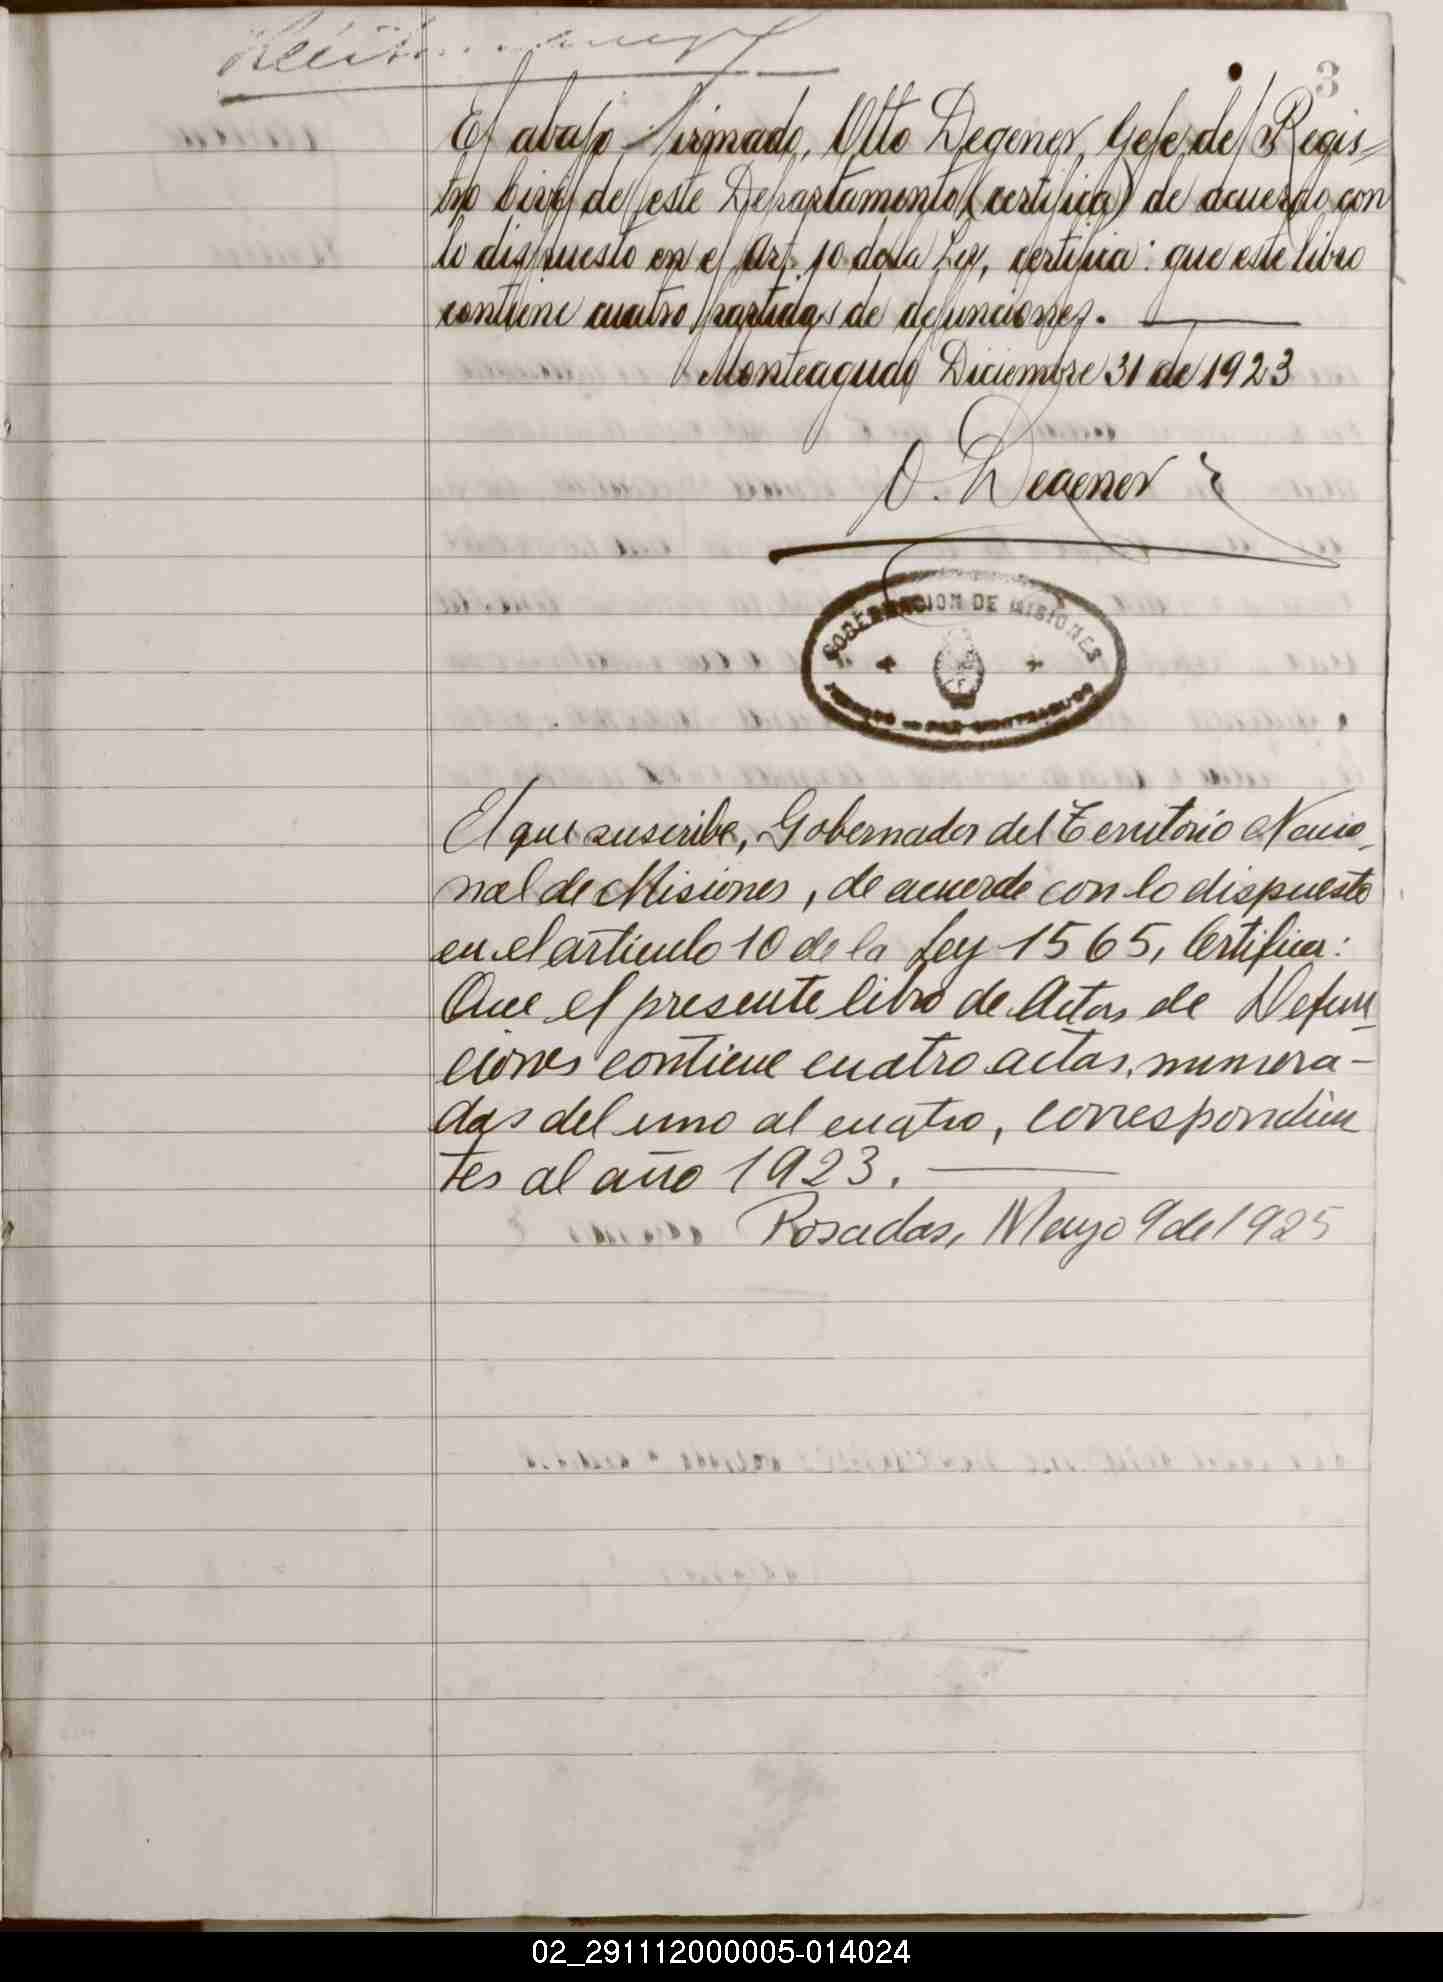 3
El abajo firmado, Otto Degener, Gefe del Regis-
tro Civil de este Departamento (certifica) de acuerdo con
lo dispuesto en el Art. 10 de la Ley, certifica: que este libro
contiene cuatro partidas de defunciones.
Monteagudo Diciembre 31 de 1923
O. Degener
GOBERNACION DE MISIONES
El que suscribe, Gobernador del Territorio Nacio-
nal de Misiones, de acuerdo con lo dispuesto
en el artículo 10 de la Ley 1565, Certifica:
Que el presente libro de Actas de Defun-
ciones contiene cuatro actas, numera-
das del uno al cuatro, correspondien
tes al año 1923.
Posadas, Mayo 9 de 1925
02_291112000005-014024